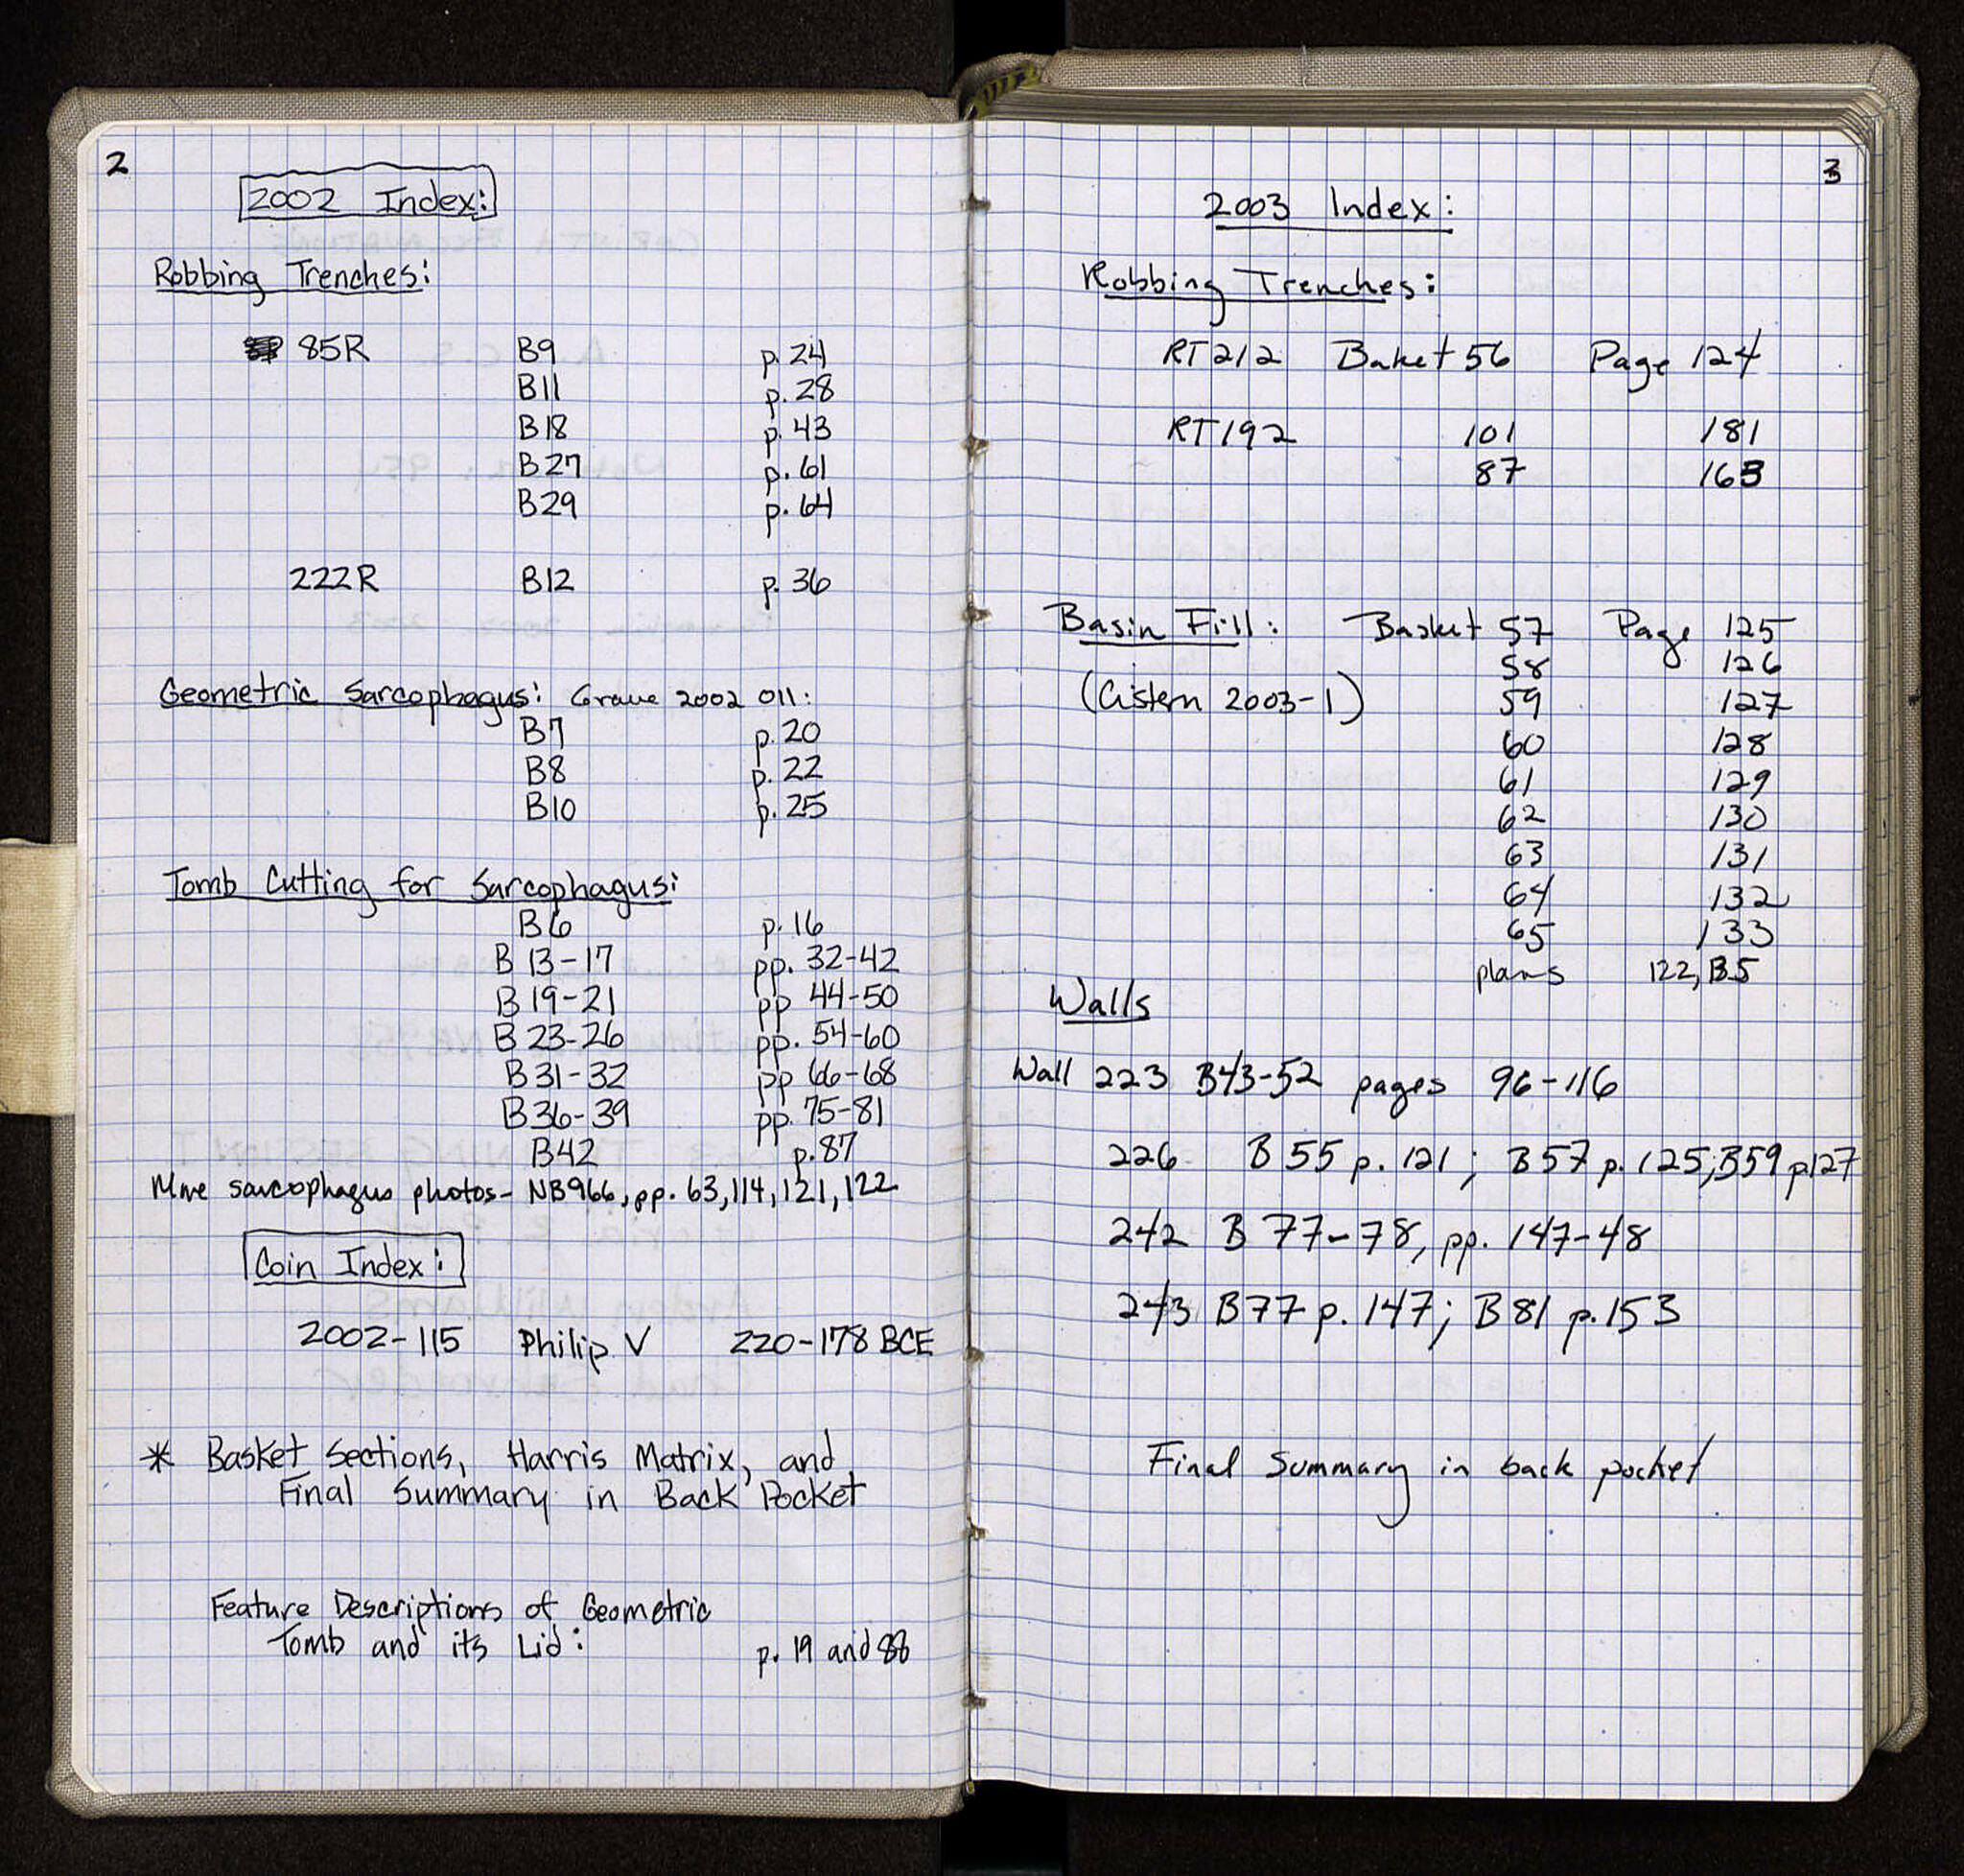 2
2002 Index:
Robbing Trenches:
85R B9 p. 24
B11 p. 28
B18 p. 43
B27 p. 61
B29 p. 64
222R B12 p. 36
Geometric Sarcophagus: Grave 2002 011:
B7 p. 20
B8 p. 22
B10 p. 25
Tomb Cutting for Sarcophagus:
B6 p. 16
B 13-17 pp. 32-42
B 19-21 pp 44-50
B 23-26 pp. 54-60
B 31-32 pp 66-68
B 36-39 pp. 75-81
B42 p. 87
More sarcophagus photos- NB966, pp. 63, 114, 121, 122
Coin Index:
2002-115 Philip V 220-178 BCE
* Basket Sections, Harris Matrix, and
Final Summary in Back Pocket
Feature Descriptions of Geometric
Tomb and its Lid: p. 19 and 88
3
2003 Index:
Robbing Trenches:
RT212 Baket 56 Page 124
RT192 101 181
87 163
Basin Fill: Basket 57 Page 125
58 126
(Cistern 2003-1) 59 127
60 128
61 129
62 130
63 131
64 132
65 133
plans 122, 135
Walls
Wall 223 B43-52 pages 96-116
226 B 55 p. 121; B57 p. 125; B59 p127
242 B 77-78, pp. 147-48
243 B77 p. 147; B 81 p. 153
Final Summary in back pocket